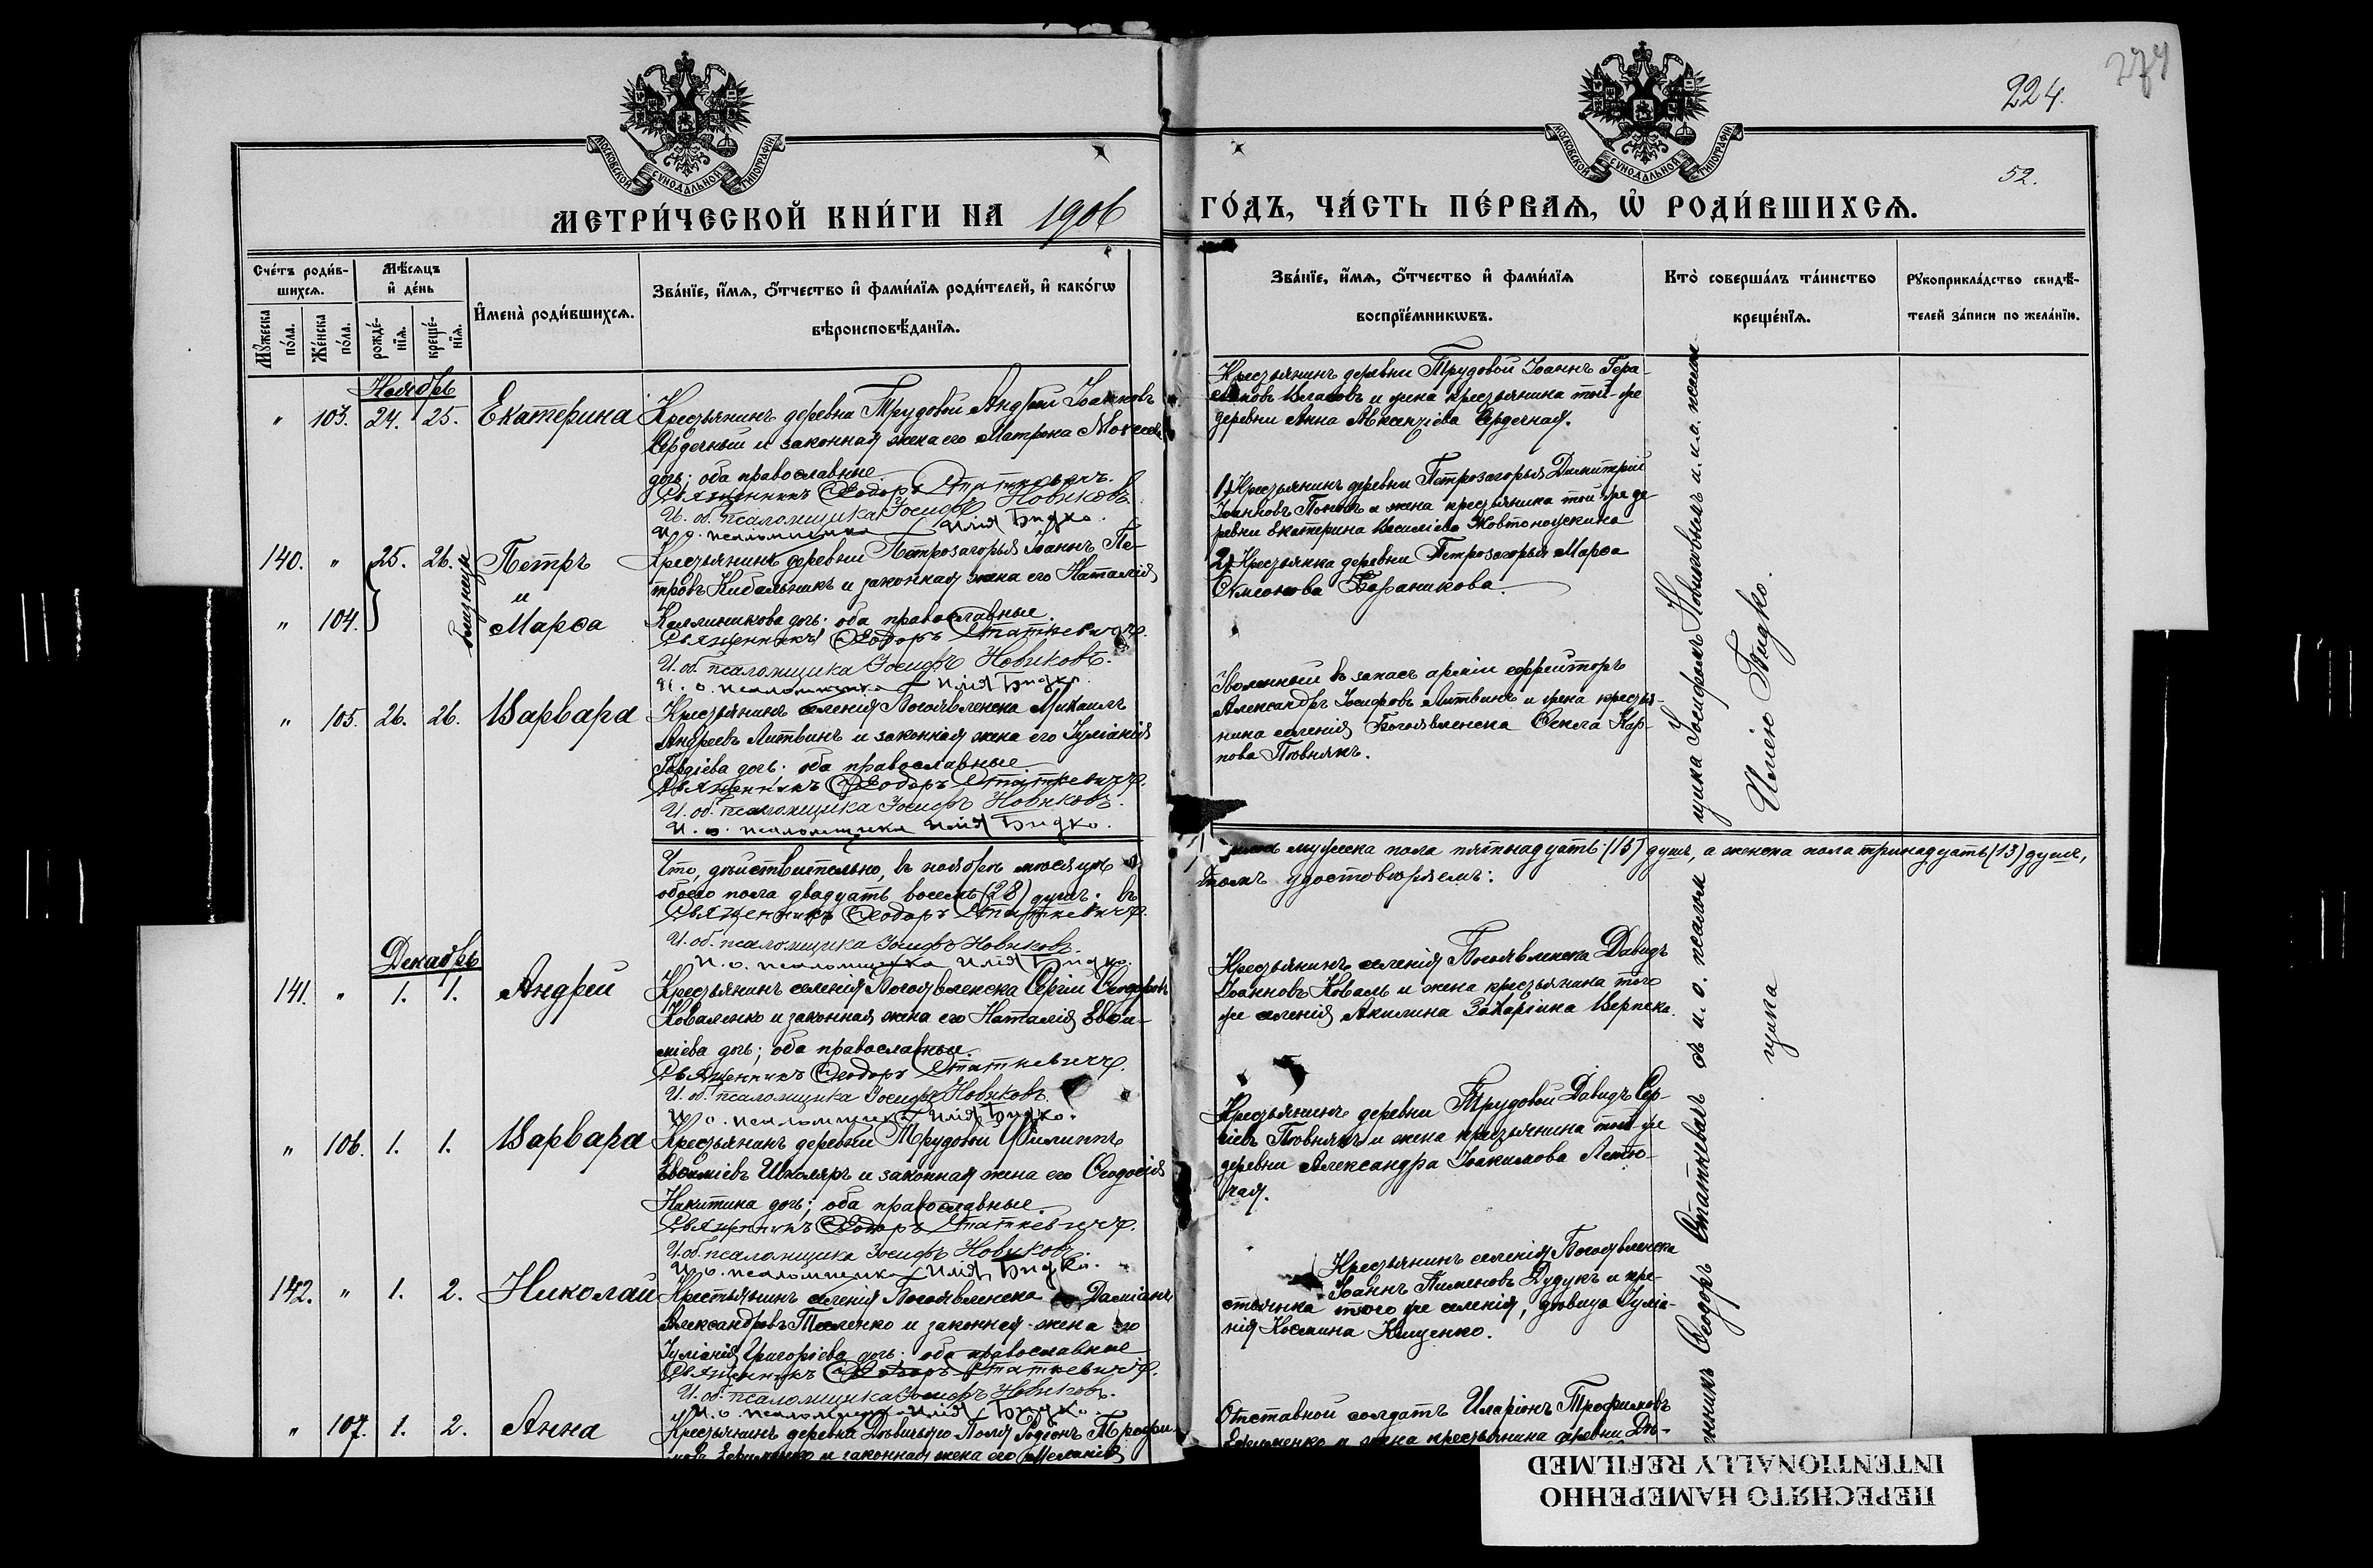 274
224.
52.
МОСКОВСКОЙ СѴНОДАЛЬНОЙ ТИПОГРАФІИ
МОСКОВСКОЙ СѴНОДАЛЬНОЙ ТИПОГРАФІИ
МЕТРИ́ЧЕСКОЙ КНИ́ГИ НА 1906
ГО́ДЪ, ЧА́СТЬ ПЕ́РВАѦ, Ѡ҆ РОДИ́ВШИХСѦ.
Сче́тъ роди́в-
шихсѧ.
Мꙋ́жеска
по́ла.
Же́нска
по́ла.
Мѣ́сѧцъ
и҆ де́нь
рожде́-
нїѧ.
креще́-
нїѧ.
И҆мена̀ роди́вшихсѧ.
Зва́нїе, и҆́мѧ, ѻ҆́тчество и҆ фами́лїѧ роди́телей, и҆ како́гѡ
вѣроисповѣ́данїѧ.
Зва́нїе, и҆́мѧ, ѻ҆́тчество и҆ фами́лїѧ
воспрїе́мникѡвъ.
Кто̀ соверша́лъ та́инство
креще́нїѧ.
Рꙋкоприкла́дство свидѣ́-
телей за́писи по жела́нїю.
Ноябрь
" 103. 24. 25. Екатерина
Крестьянинъ деревни Трудовой Андрей Іоанновъ
Сердечный и законная жена его Матрона Моисеева
дочь; оба православные
Священникъ Ѳеодоръ Статкевичъ.
И. об. псаломщика Іосифъ Новиковъ
И. о. псаломщика Илія Бидко.
Крестьянинъ деревни Трудовой Іоаннъ Гера-
симовъ Власовъ и жена крестьянина той-же
деревни Анна Авксентіева Сердечная.
140. " 25. 26. Петръ
и
" 104. Марѳа
близнецы
Крестьянинъ деревни Петрозагорья Іоаннъ Пе-
тровъ Кибальникъ и законная жена его Наталія
Каллиникова дочь; оба православные.
Священникъ Ѳеодоръ Статкевичъ.
И. об. псаломщика Іосифъ Новиковъ.
И. о. псаломщика Илія Бидко.
1) Крестьянинъ деревни Петрозагорья Димитрій
Іоанновъ и жена крестьянина той же де-
ревни Екатерина Василіева Жовтоножкина
2) Крестьянка деревни Петрозагорья Марѳа
Симонова Баранникова.
" 105. 26. 26. Варвара
Крестьянинъ селенія Богоявленска Михаилъ
Андреевъ Литвинъ и законная жена его Іуліанія
Гордіева дочь; оба православные
Священникъ Ѳеодоръ Статкевичъ.
И. об. псаломщика Іосифъ Новиковъ.
И. о. псаломщика Илія Бидко.
Уволенный въ запасъ арміи ефрейторъ
Александръ Іосифовъ Литвинъ и жена крестья-
нина селенія Богоявленска Ѳекла Кар-
пова Повнякъ.
Что, дѣйствительно, въ ноябрѣ мѣсяцѣ
обоего пола двадцать восемь (28) душъ. въ
мужеска пола пятнадцать (15) душъ, а женска пола тринадцать (13) душъ,
томъ удостовѣряемъ:
Священникъ Ѳеодоръ Статкевичъ.
И. об. псаломщика Іосифъ Новиковъ.
И. о. псаломщика Илія Бидко.
Декабрь
141. " 1. 1. Андрей
Крестьянинъ селенія Богоявленска Сергій Ѳеодоровъ
Коваленко и законная жена его Наталія Евѳи-
міева дочь; оба православные.
Священникъ Ѳеодоръ Статкевичъ.
И. об. псаломщика Іосифъ Новиковъ.
И. о. псаломщика Илія Бидко.
Крестьянинъ селенія Богоявленска Давидъ
Іоанновъ Коваль и жена крестьянина того
же селенія Акилина Захаріина
" 106. 1. 1. Варвара
Крестьянинъ деревни Трудовой Филиппъ
Евѳиміевъ Школяръ и законная жена его Ѳеодосія
Никитина дочь; оба православные.
Священникъ Ѳеодоръ Статкевичъ.
И. об. псаломщика Іосифъ Новиковъ.
И. о. псаломщика Илія Бидко.
Крестьянинъ деревни Трудовой Давидъ Сер-
гіевъ Повнякъ и жена крестьянина той же
деревни Александра Іоакимова Летю-
чая.
142. " 1. 2. Николай
Крестьянинъ селенія Богоявленска Даміанъ
Александровъ и законная жена его
Іуліанія Григоріева дочь; оба православные
Священникъ Ѳеодоръ Статкевичъ.
И. об. псаломщика Іосифъ Новиковъ.
И. о. псаломщика Илія Бидко.
Крестьянинъ селенія Богоявленска
Іоаннъ Пименовъ Дудукъ и кре-
стьянка того же селенія, дѣвица Іуліа-
нія Космина Кищенко.
" 107. 1. 2. Анна
Крестьянинъ деревни Дѣвичьяго Поля Родіонъ Трофи-
мовъ Ефименко и законная жена его Меланія
Отставной солдатъ Иларіонъ Трофимовъ
Ефименко и жена крестьянина деревни Дѣ-
енникъ Ѳеодоръ Статкевичъ съ и. о. псалом
щика Іосифомъ Новиковымъ и и. о. псалом-
щика
Иліею Бидко.
ПЕРЕСНЯТО НАМЕРЕННО
INTENTIONALLY REFILMED